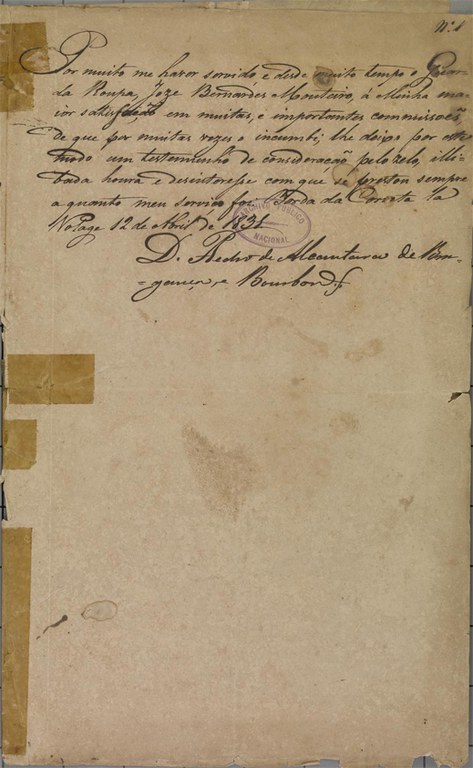 Nº 1
Por muito me haver servido, e desde muito tempo o Guar
da Roupa, Joze Bernardes Monteiro, á Minha ma
ior satisfação em muitas, e importantes commissoẽs
de que por muitas vezes o incumbi; lhe deixo por este
modo um testemunho de consideração pelo zelo, illi
bada honra e desinteresse com que se prestou sempre
a quanto meu serviço foi. Borda da Corveta La
Volage 12 de Abril de 1831
ARCHIVO PUBLICO
NACIONAL
D. Pedro de Alcantara de Bra-
-gança, e Bourbon